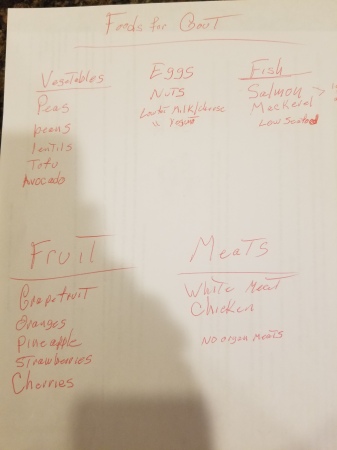 Foods for Gout
Vegetables
Peas
beans
lentils
Tofu
Avocado
Eggs
Nuts
Lowfat Milk/cheese
" Yogurt
Fish
Salmon
Mackerel
Low Seafood
Fruit
Grapefruit
Oranges
Pineapple
Strawberries
Cherries
Meats
White Meat
Chicken
No organ meats